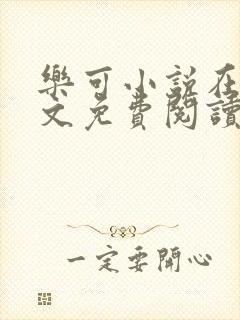 樂可小說在
文免費閱讀
一定要開心